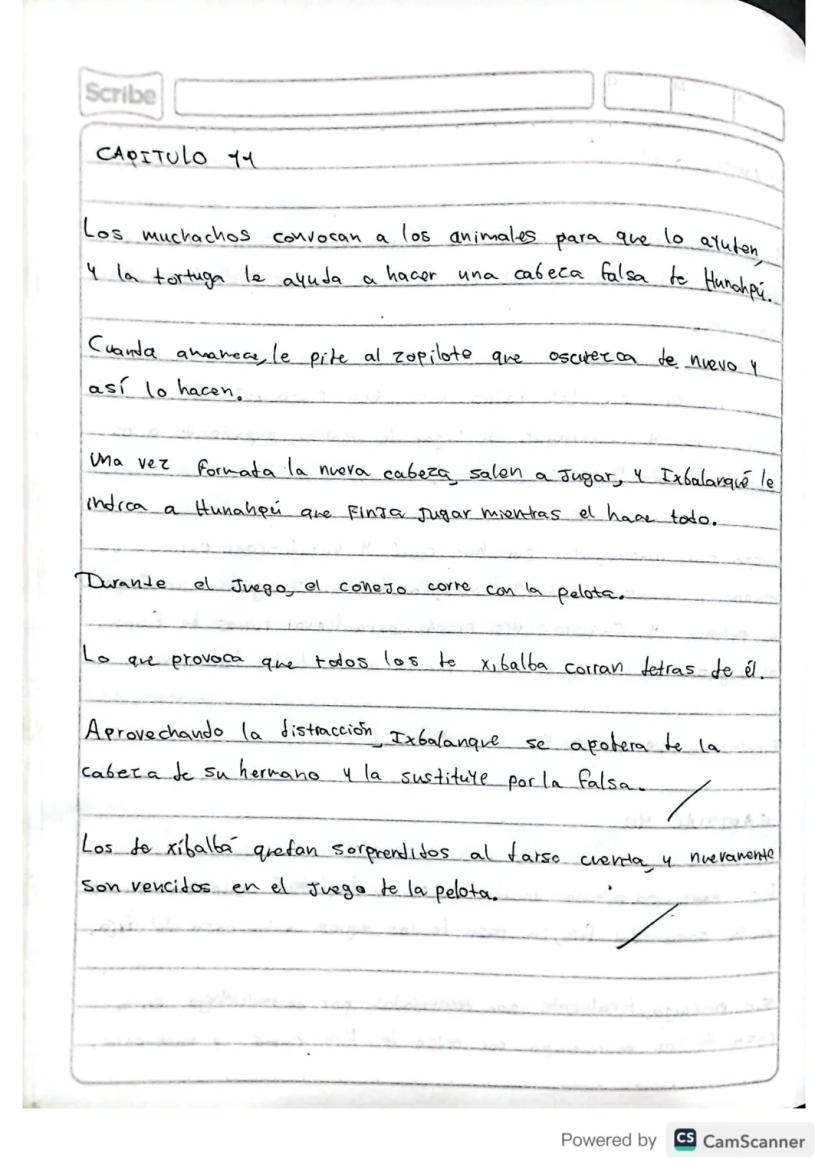 Scribe
CAPITULO 11
Los muchachos convocan a los animales para que lo ayuden,
y la tortuga le ayuda a hacer una cabeca falsa de Hunahpú.
Cuanda amanece, le pide al zopilote que oscurezca de nuevo y
así lo hacen.
Una vez formada la nueva cabeza, salen a jugar, y Ixbalanqué le
indica a Hunahpú que finja jugar mientras el hace todo.
Durante el juego, el conejo corre con la pelota.
Lo que provoca que todos los de xibalba corran detras de él.
Aprovechando la distracción, Ixbalanque se apodera de la
cabeza de su hermano y la sustituye por la falsa.
Los de xibalbá quedan sorprendidos al darse cuenta, y nuevamente
son vencidos en el juego de la pelota.
Powered by CS CamScanner